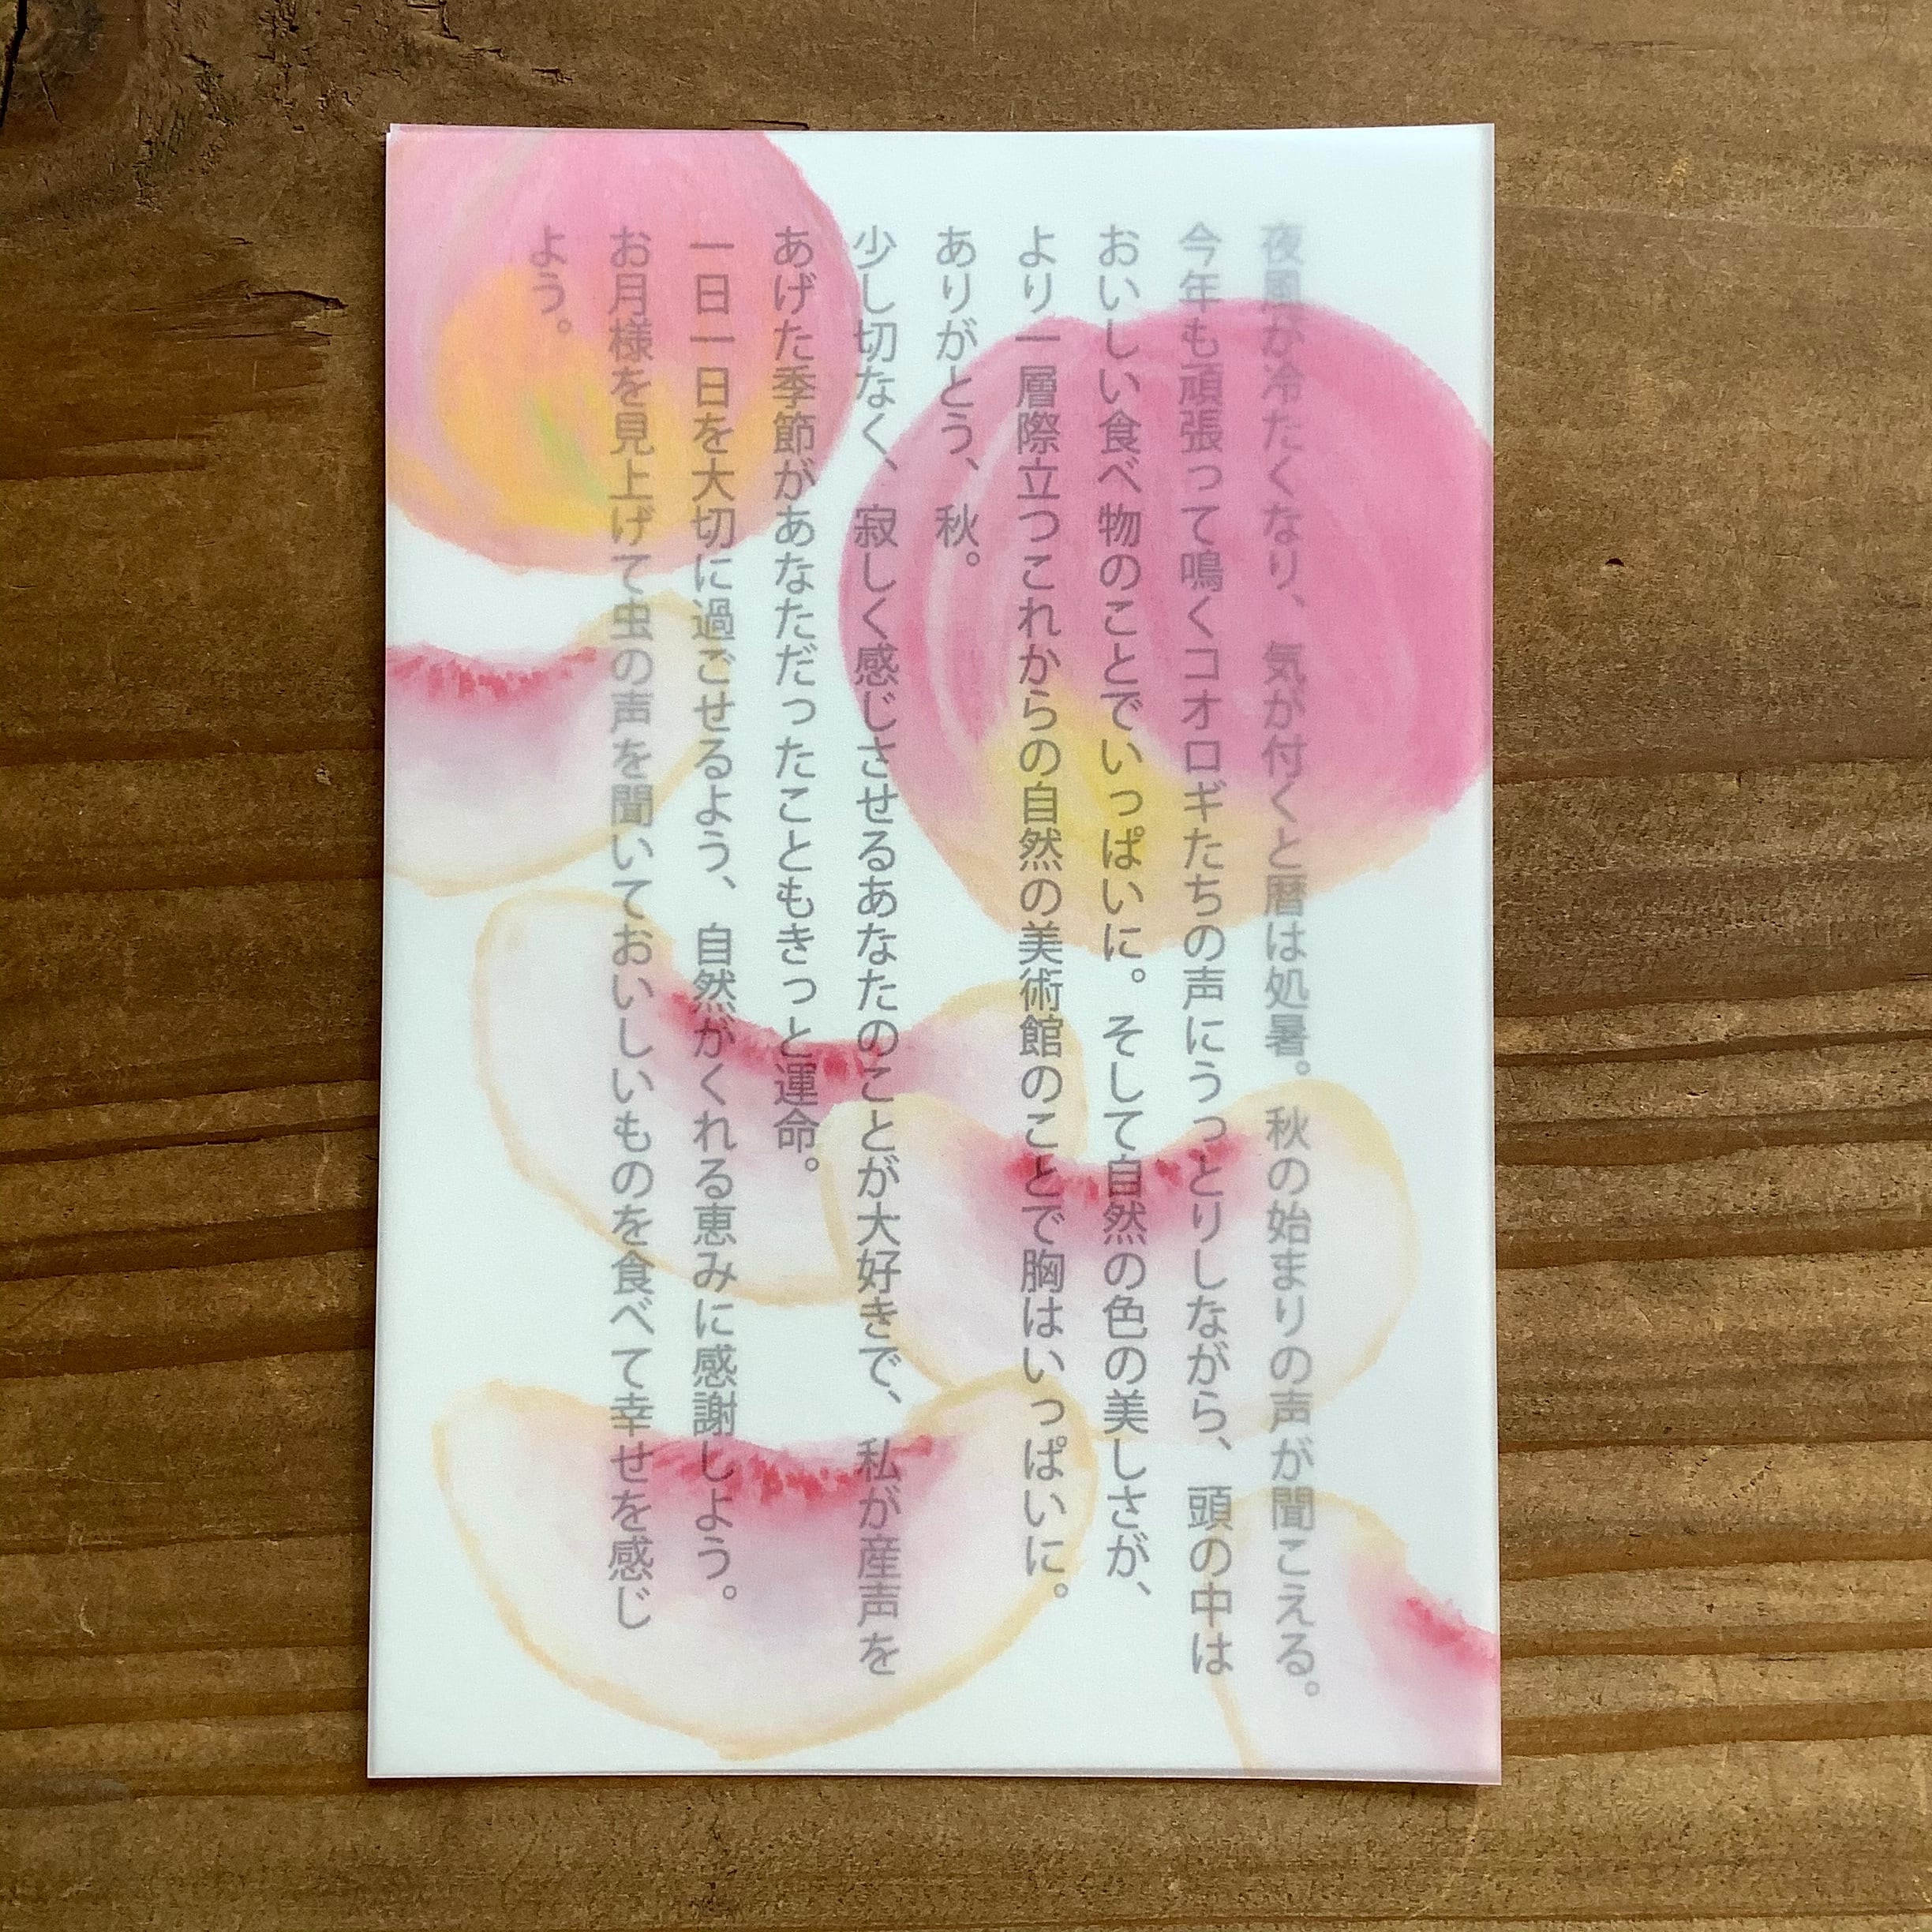 夜風が冷たくなり、気が付くと暦は処暑。秋の始まりの声が聞こえる。
今年も頑張って鳴くコオロギたちの声にうっとりしながら、頭の中は
おいしい食べ物のことでいっぱいに。そして自然の色の美しさが、
より一層際立つこれからの自然の美術館のことで胸はいっぱいに。
ありがとう、秋。
少し切なく、寂しく感じさせるあなたのことが大好きで、私が産声を
あげた季節があなただったこともきっと運命。
一日一日を大切に過ごせるよう、自然がくれる恵みに感謝しよう。
お月様を見上げて虫の声を聞いておいしいものを食べて幸せを感じ
よう。